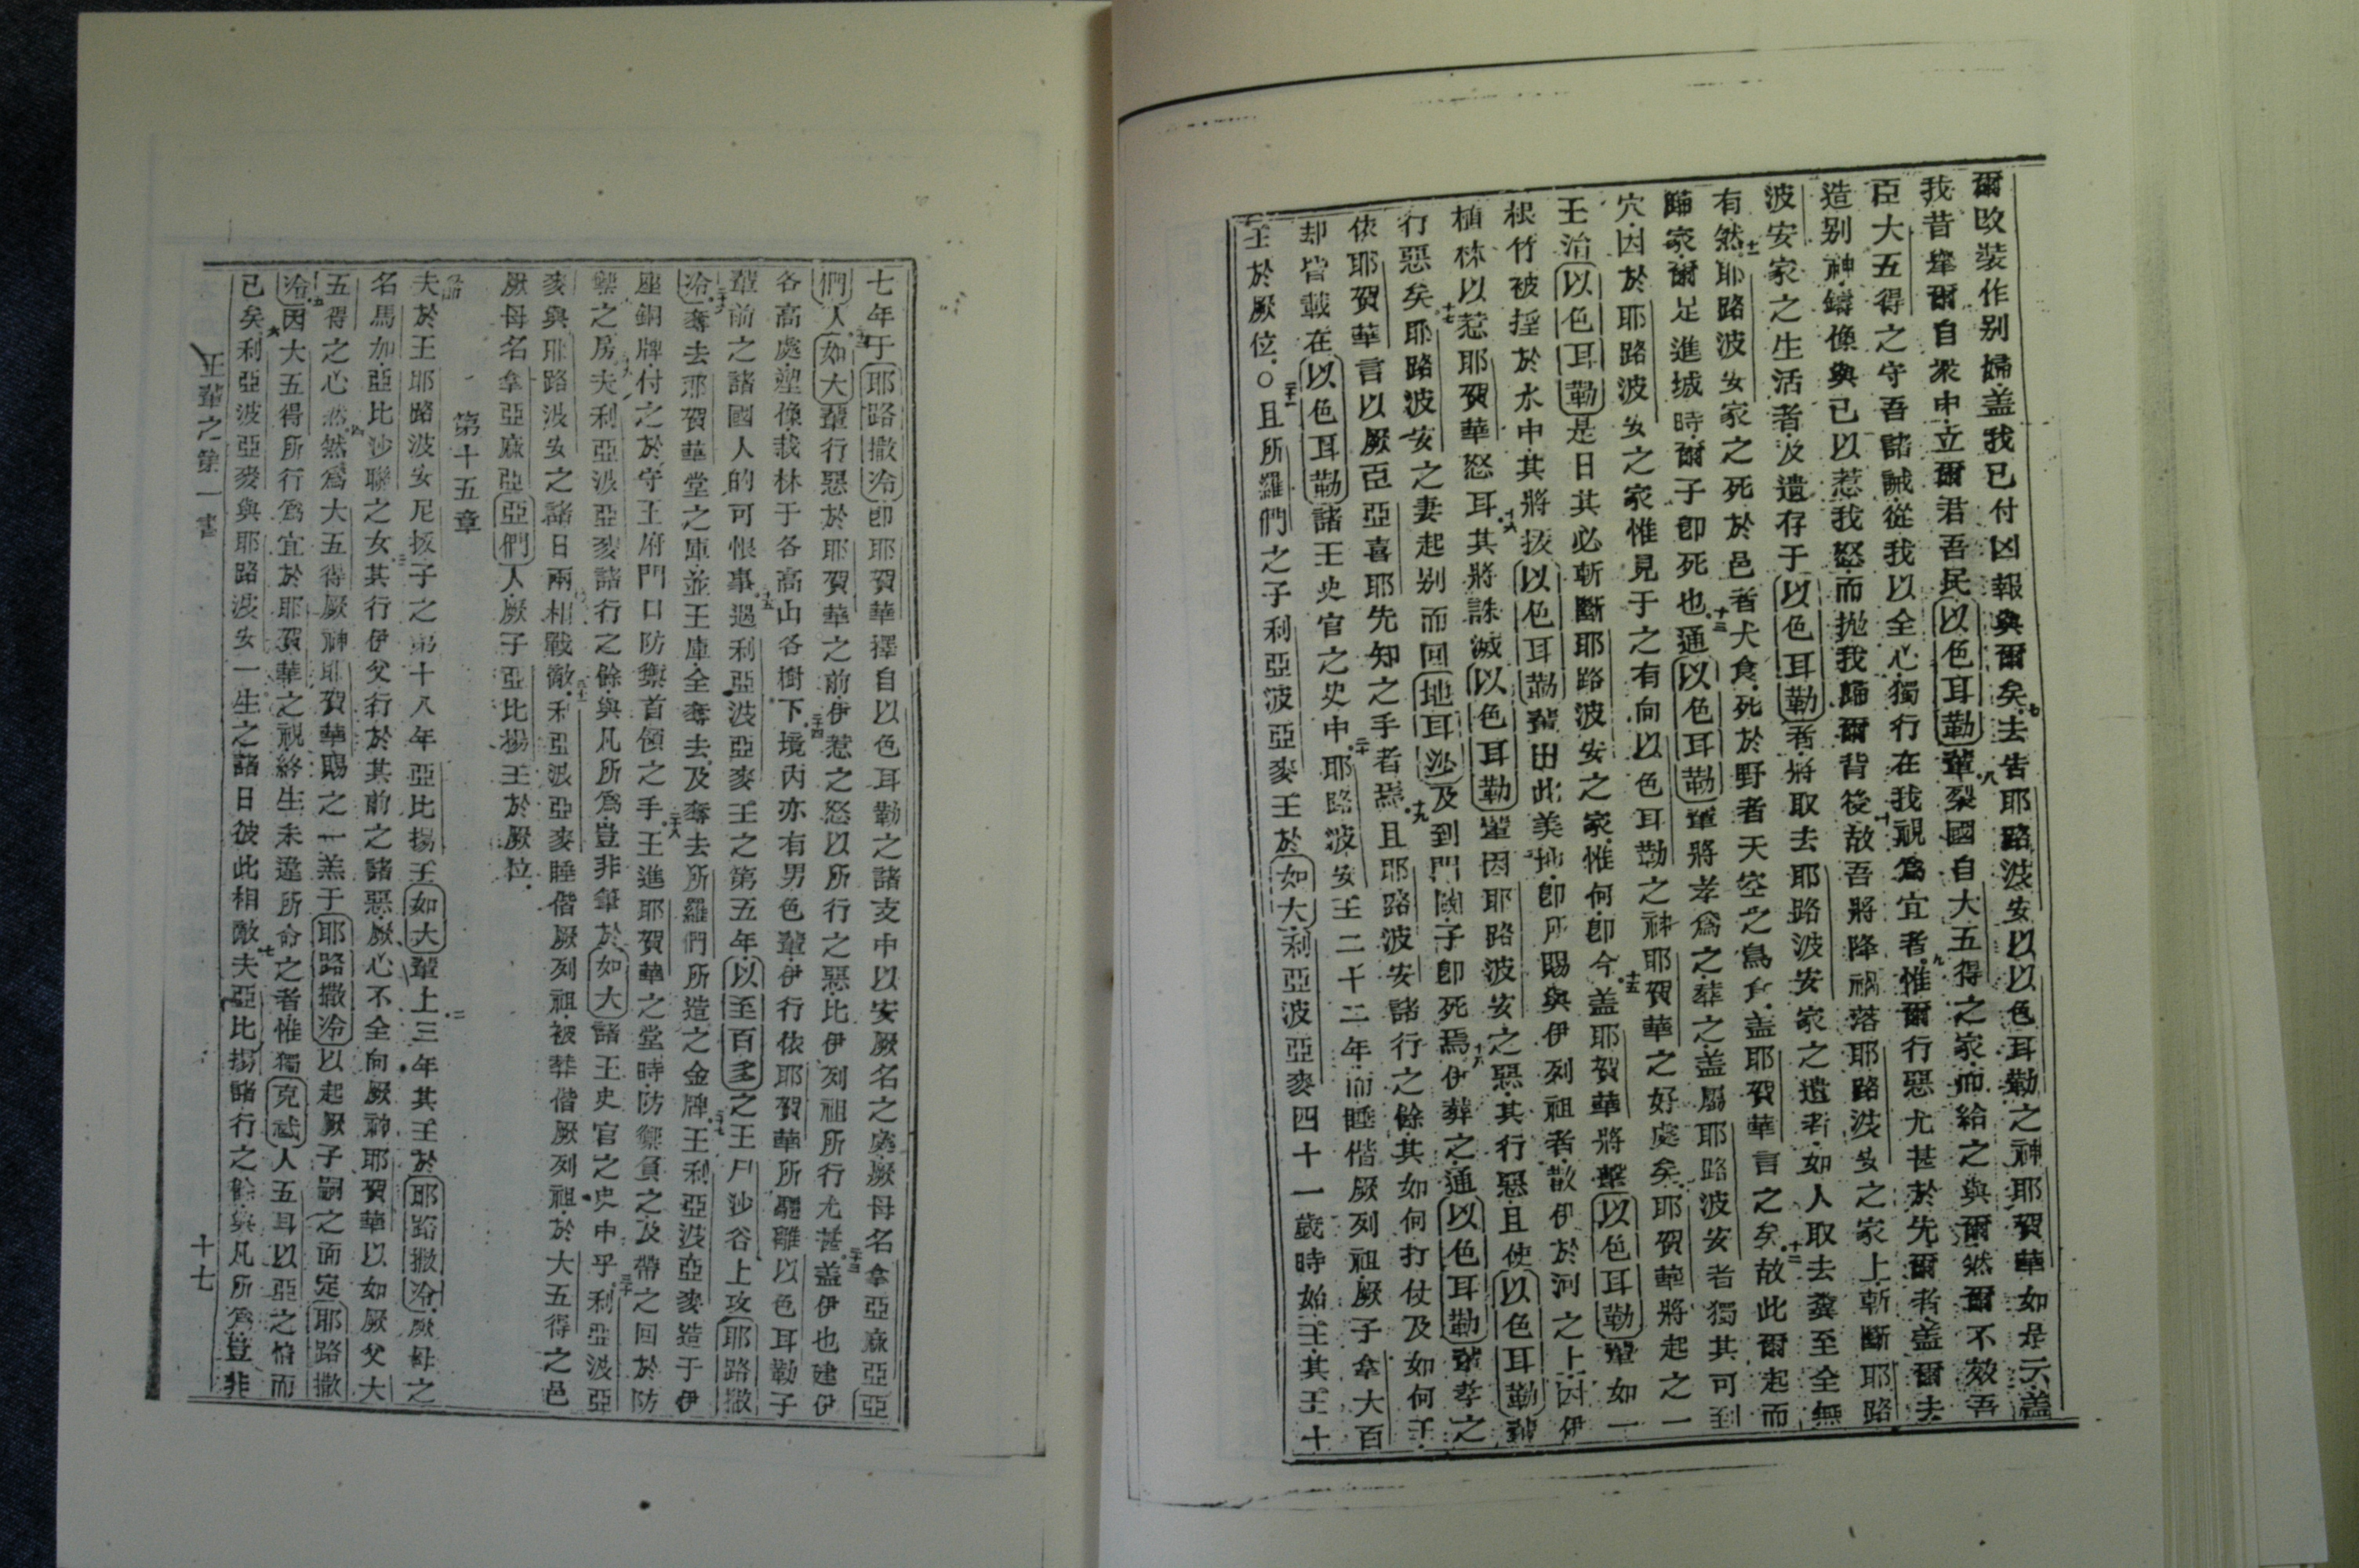 爾改裝作别婦盖我已付凶報與爾矣七去告耶路波安以以色耳勒之神耶賀華如是云盖
我昔舉爾自衆中立爾君吾民以色耳勒輩八裂國自大五得之家而給之與爾然爾不效吾
臣大五得之守吾諸誡從我以全心獨行在我視爲宜者九惟爾行惡尤甚於先爾者盖爾去
造别神鑄像與已以惹我怒而抛我歸爾背後十故吾將降禍落耶路波安之家上斬斷耶路
波安家之生活者及遺存于以色耳勒者將取去耶路波安家之遺者如人取去糞至全無
有然十一耶路波安家之死於邑者犬食死於野者天空之鳥食盖耶賀華言之矣十二故此爾起而
歸家爾足進城時爾子卽死也十三通以色耳勒輩將孝爲之葬之盖屬耶路波安者獨其可到
穴因於耶路波安之家惟見于之有向以色耳勒之神耶賀華之好處矣耶賀華將起之一
王治以色耳勒是日其必斬斷耶路波安之家惟何卽今十五盖耶賀華將擊以色耳勒輩如一
根竹被搖於水中其將拔以色耳勒輩出此美地卽所賜與伊列祖者散伊於河之上因伊
植林以惹耶賀華怒耳十六其將誅滅以色耳勒輩因耶路波安之惡其行惡且使以色耳勒輩
行惡矣十七耶路波安之妻起别而回地耳沙及到門閾子卽死焉十八伊葬之通以色耳勒輩孝之
依耶賀華言以厥臣亞喜耶先知之手者焉十九且耶路波安諸行之餘其如何打仗及如何王
却皆載在以色耳勒諸王史官之史中二十耶路波安王二十二年而睡偕厥列祖厥子拿大百
王於厥位〇二十一且所羅們之子利亞波亞麥王於如大利亞波亞麥四十一歲時始王其王十
七年于耶路撒冷卽耶賀華擇自以色耳勒之諸支中以安厥名之處厥母名拿亞麻亞亞
們人二十二如大輩行惡於耶賀華之前伊惹之怒以所行之惡比伊列祖所行尤甚二十三盖伊也建伊
各高處塑像栽林于各高山各樹下二十四境内亦有男色輩伊行依耶賀華所驅離以色耳勒子
輩前之諸國人的可恨事二十五遇利亞波亞麥王之第五年以至百多之王尸沙谷上攻耶路撒
冷二十六奪去耶賀華堂之庫並王庫全奪去及奪去所羅們所造之金牌二十七王利亞波亞麥造于伊
座銅牌付之於守王府門口防禦首領之手二十八王進耶賀華之堂時防禦負之及帶之回於防
禦之房二十九夫利亞波亞麥諸行之餘與凡所爲豈非筆於如大諸王史官之史中乎三十利亞波亞
麥與耶路波安之諸日兩相戰敵三十一利亞波亞麥睡偕厥列祖被葬偕厥列祖於大五得之邑
厥母名拿亞麻亞亞們人厥子亞比揚王於厥位
第十五章
一節夫於王耶路波安尼扳子之第十八年亞比揚王如大輩上二三年其王於耶路撒冷厥母之
名馬加亞比沙聯之女三其行伊父行於其前之諸惡厥心不全向厥神耶賀華以如厥父大
五得之心然四然爲大五得厥神耶賀華賜之一羔于耶路撒冷以起厥子嗣之而定耶路撒
冷五因大五得所行爲宜於耶賀華之視終生未違所命之者惟獨克忒人五耳以亞之情而
已矣六利亞波亞麥與耶路波安一生之諸日彼此相敵七夫亞比揚諸行之餘與凡所爲豈非
王輩之第一書　十七